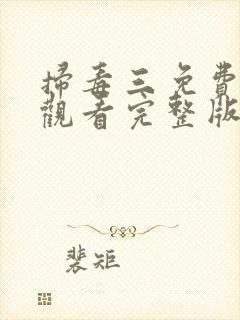 掃毒三免費
觀看完整版
裴矩